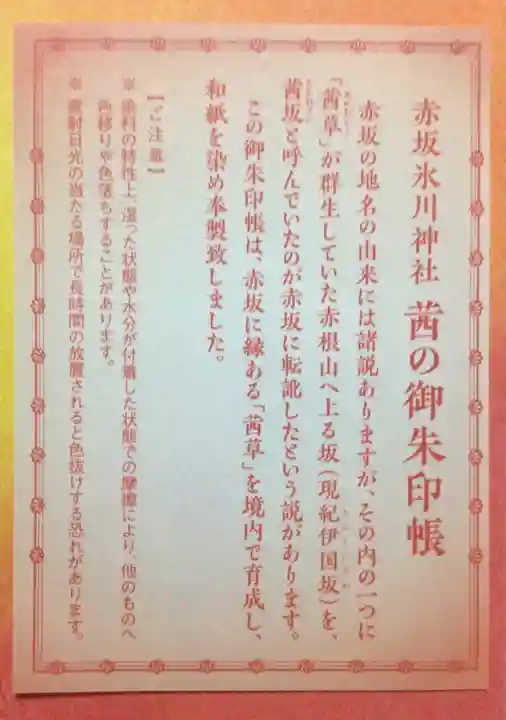 赤坂氷川神社 茜の御朱印帳
赤坂の地名の由来には諸説ありますが、その内の一つに
「茜草」が群生していた赤根山へ上る坂(現紀伊国坂)を、
茜坂と呼んでいたのが赤坂に転訛したという説があります。
この御朱印帳は、赤坂に縁ある「茜草」を境内で育成し、
和紙を染め奉製致しました。
【ご注意】
※ 染料の特性上、湿った状態や水分が付着した状態での摩擦により、他のものへ
色移りや色落ちすることがあります。
※ 直射日光の当たる場所で長時間の放置されると色抜けする恐れがあります。